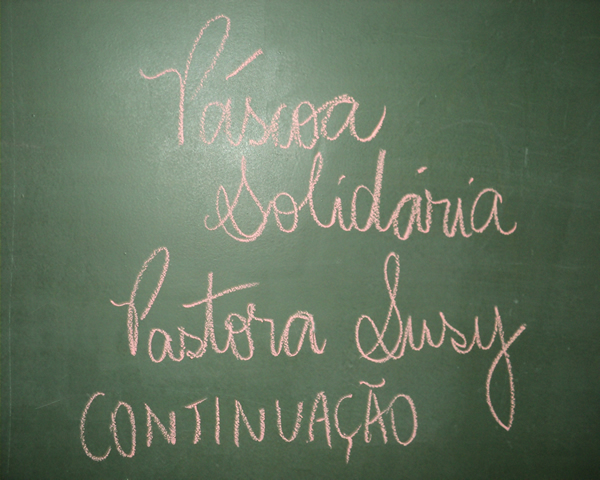 Páscoa
Solidária
Pastora Susy
CONTINUAÇÃO